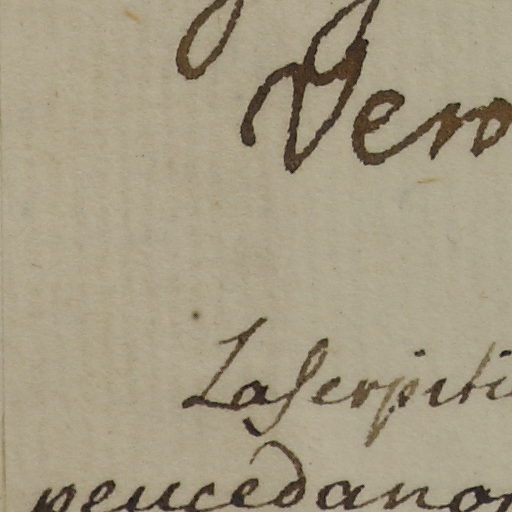 Vero
Laserpiti
peucedanon